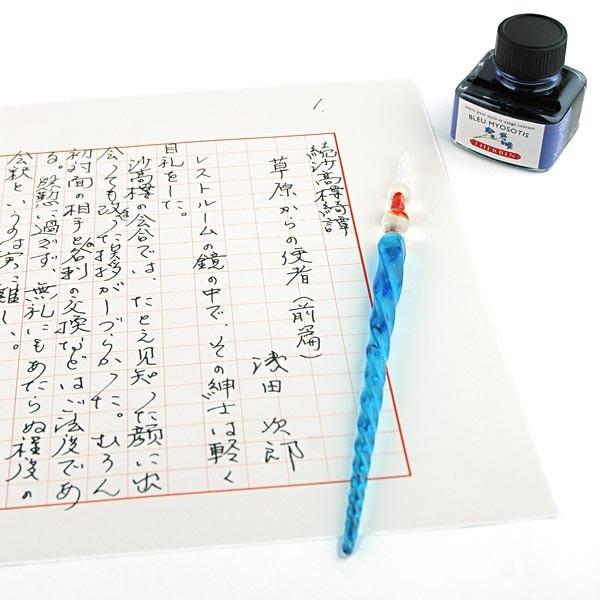 1.
続沙高樓綺譚
草原からの使者(前篇)
浅田次郎
レストルームの鏡の中で、その紳士は軽く
目礼をした。
沙高樓の会合では、たとえ見知った顔に出
会っても改まった挨拶がしづらかった。むろん
初対面の相手との名刺の交換などはご法度であ
る。慇懃に過ぎず、無礼にもあたらぬ程度の
会釈というのは実に難しい。
BLEU MYOSOTIS
J.HERBIN